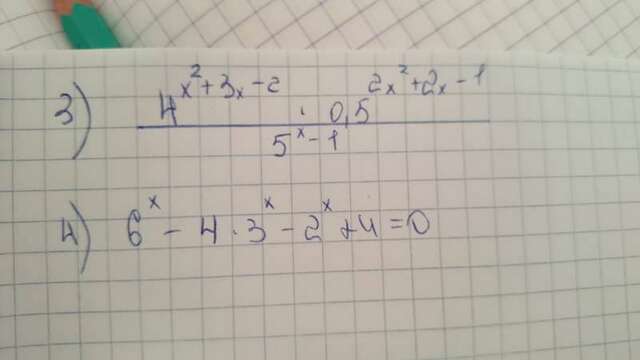 3) 4^(x²+3x-2) · 0,5^(2x²+2x-1)
5^x - 1
4) 6^x - 4·3^x - 2^x + 4 = 0